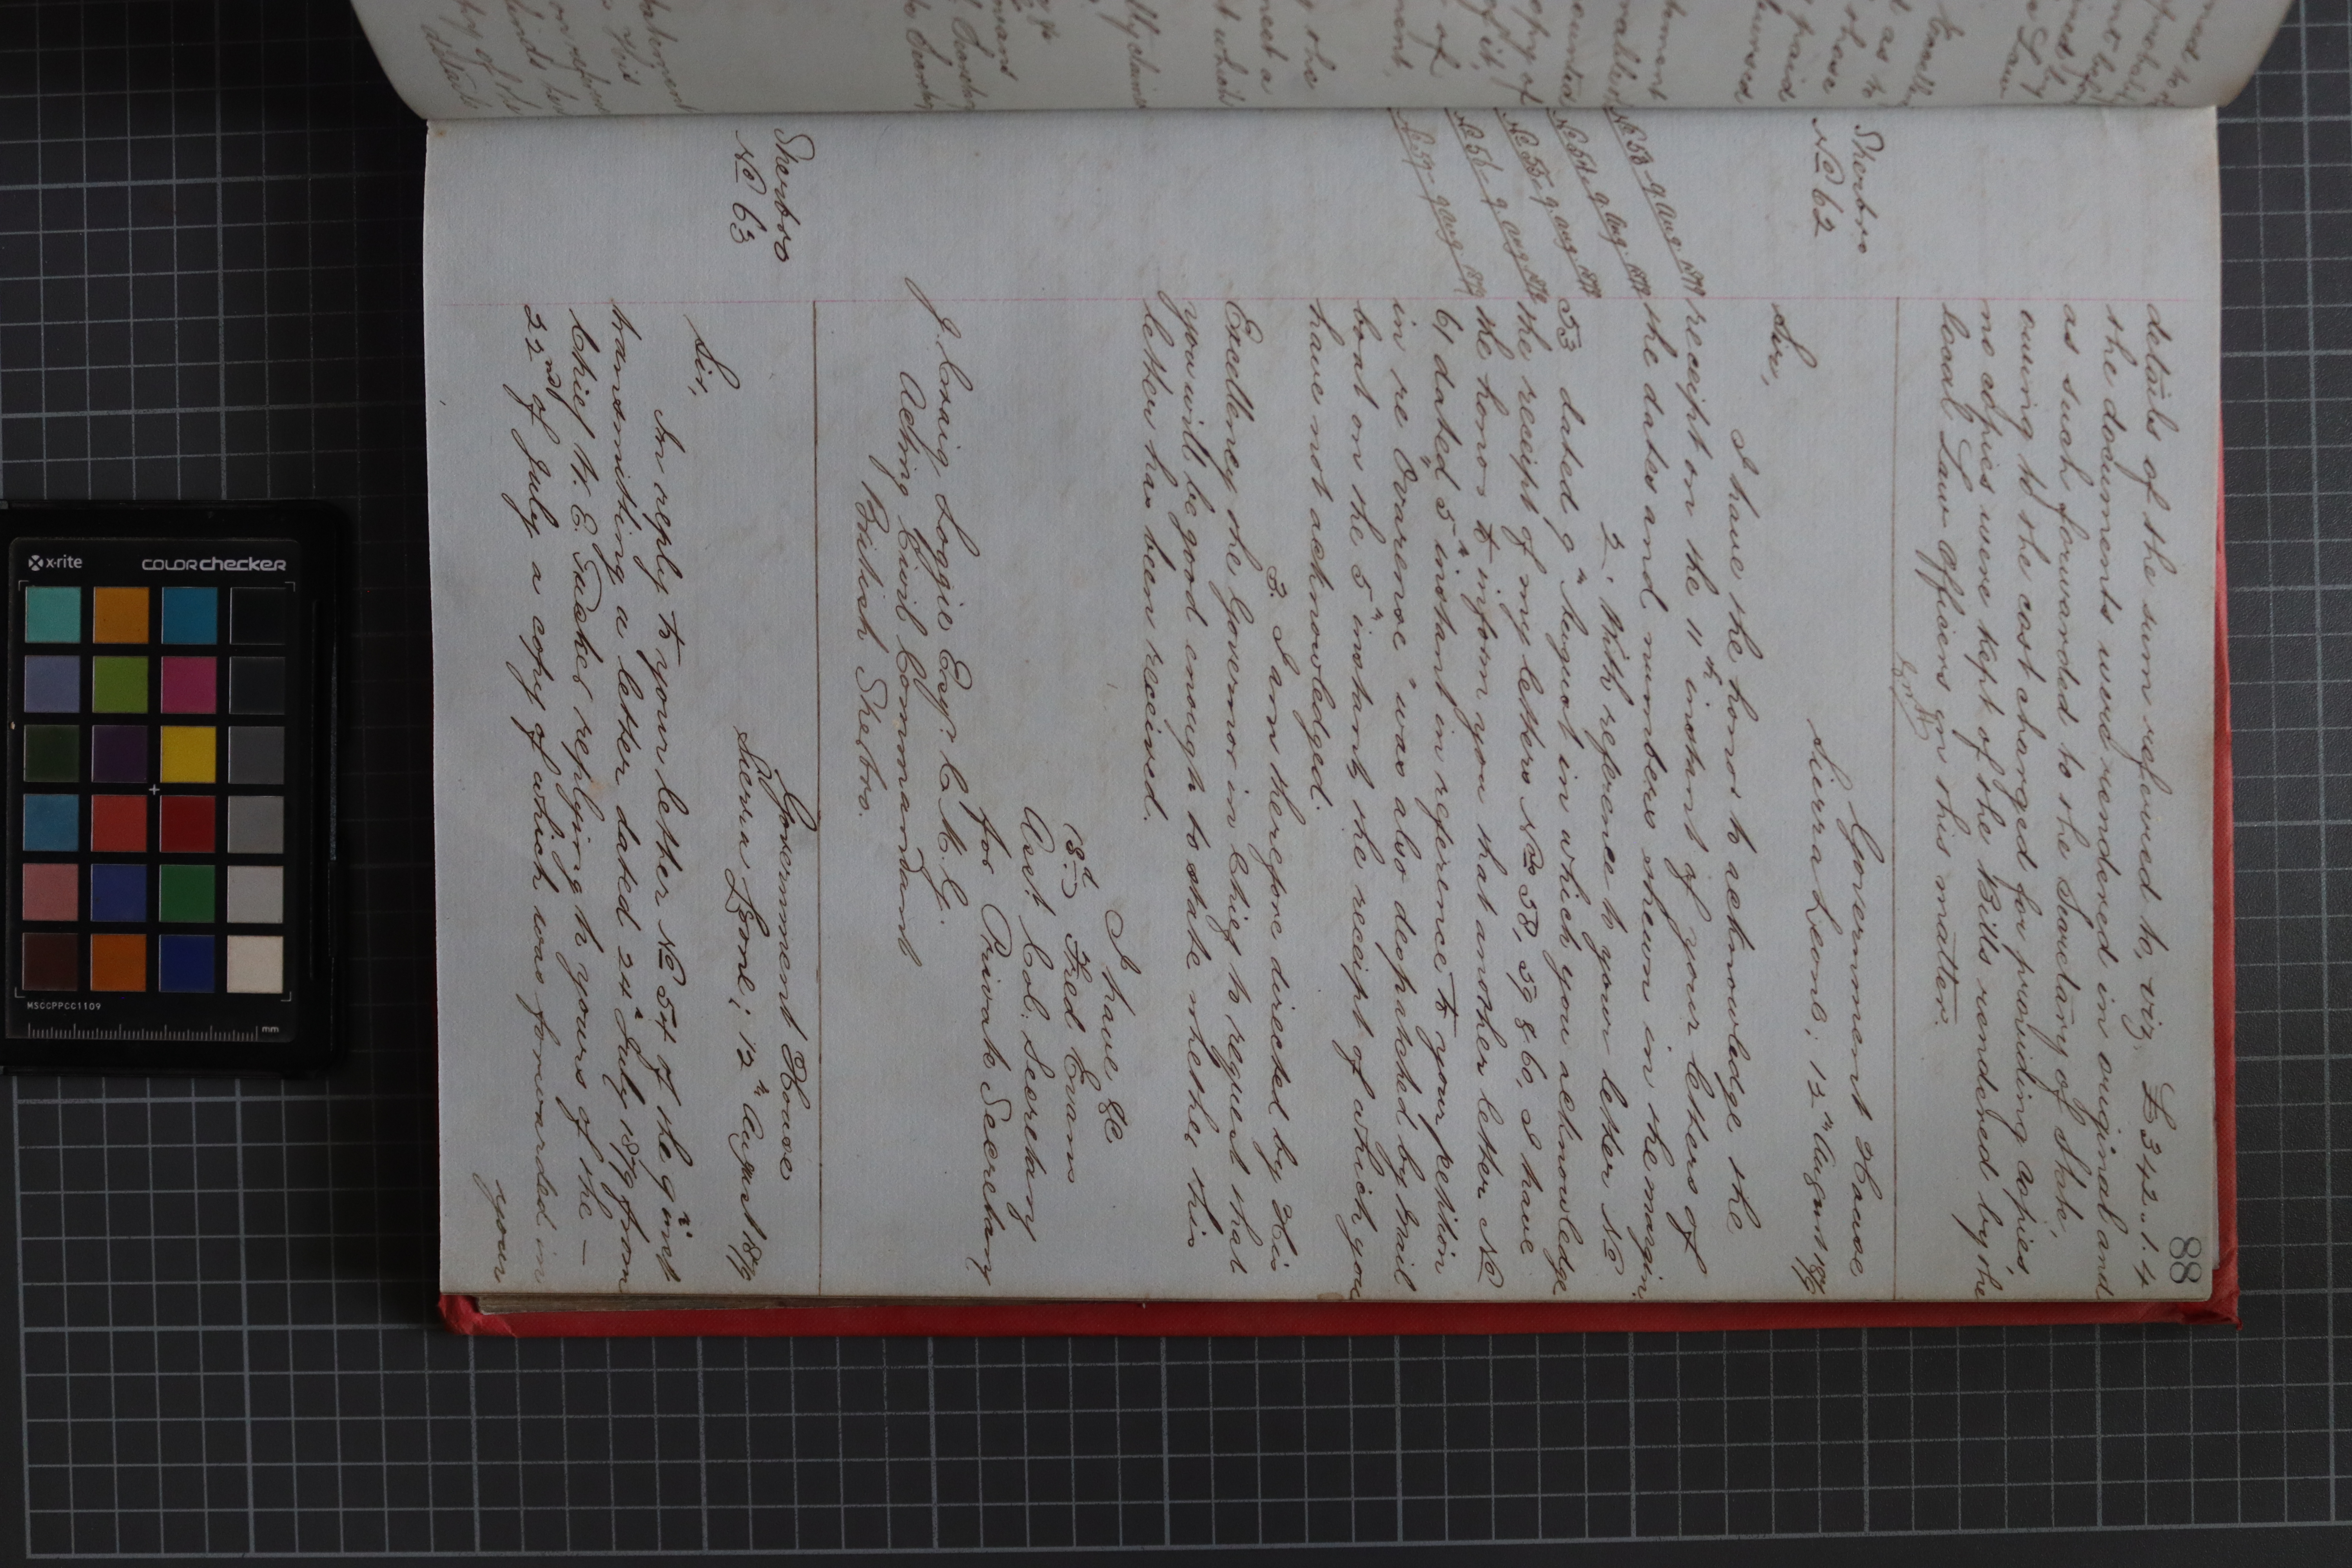 88
details of the sum referred to, viz, £342.1.4
the documents were rendered in original and
as such forwarded to the Secretary of State
owing to the cost charged for providing copies,
no copies were kept of the Bills rendered by the
local Law Officers in this matter.
Sherbro
No 62
Government House
Sierra Leone; 12th August 1879
Sir,
I have the honor to acknowledge the
receipt on the 11th instant of your letters of
the dates and numbers shewn in the margin.
No 53 9 Aug 1879
No 54, 9 Aug. 1879
No 55, 9 Aug 1879
No 56, 9 Aug 1879
No 59, 9 Aug 1879
2. With reference to your letter No
53 dated 9th August in which you acknowledge
the receipt of my letters Nos 58, 59 & 60, I have
the honor to inform you that another letter No
61 dated 5th instant in reference to your petition
in re "Ovarense" was also despatched by mail
boat on the 5th instant, the receipt of which you
have not acknowledged.
3. I am therefore directed by His
Excellency the Governor in Chief to request that
you will be good enough to state whether this
letter has been received.
I have &c
(Sd) Fred Evans
Asst. Col. Secretary
for Private Secretary
J. Craig Loggie Esq. C.M.G.
Acting Civil Commandant
British Sherbro.
Sherbro
No 63
Government House
Sierra Leone; 12th August 1879
Sir,
In reply to your letter No 54 of the 9th inst
transmitting a letter dated 24th July 1879 from
Chief W. E. Tucker replying to yours of the -
22nd of July a copy of which was forwarded in
your